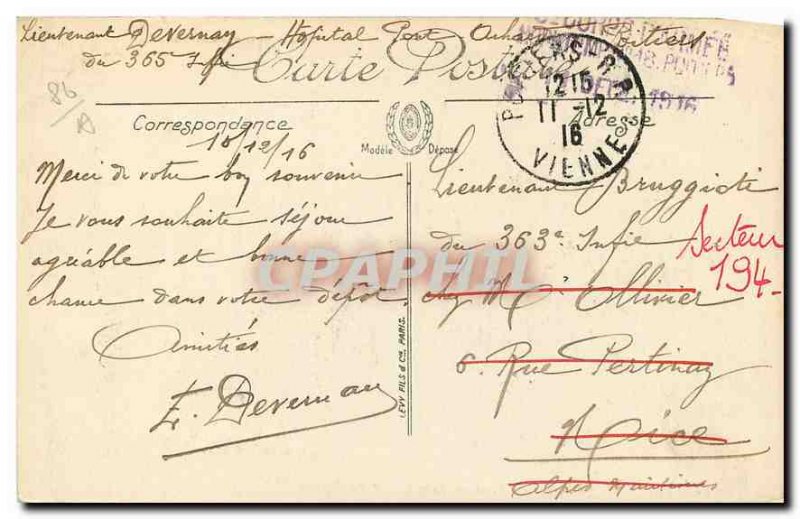 Lieutenant Devernay - Hôpital Pont Achard Poitiers
du 365 Infie
Carte Postale
86
A
POITIERS R.P.
1215
11-12
16
VIENNE
DEC. 1916
Correspondance
Modèle Déposé
Adresse
10/12/16
Merci de votre bon souvenir
Je vous souhaite séjour
agréable et bonne
chance dans votre dépôt.
Amitiés
E. Devernay
LEVY FILS & Cie, PARIS.
Lieutenant Bruggioti
du 363e Infie
Secteur
194-
chez Mr Ollivier
6. Rue Pertinax
Nice
Alpes Maritimes
CPAPHIL